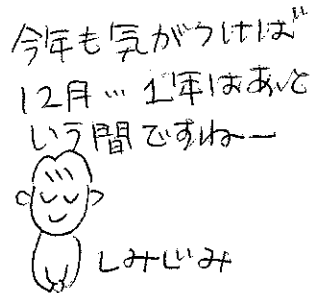 今年も気がつけば
12月… 1年はあっと
いう間ですねー
しみじみ